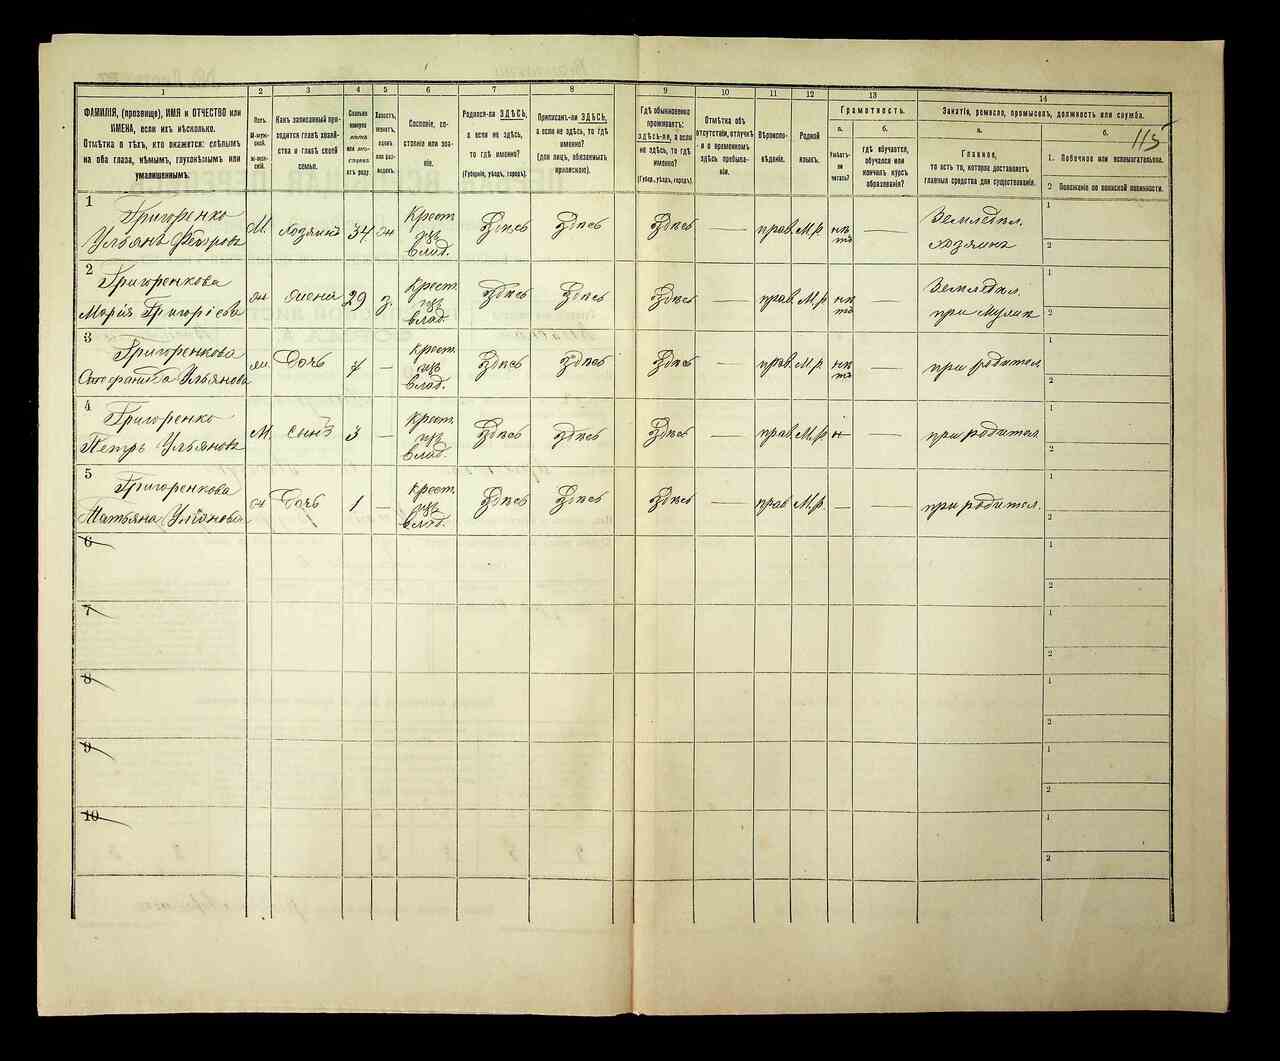 115
1 2 3 4 5 6 7 8 9 10 11 12 13 14
ФАМИЛІЯ, (прозвище), ИМЯ и ОТЧЕСТВО или
ИМЕНА, если ихъ нѣсколько.
Отмѣтка о тѣхъ, кто окажется: слѣпымъ
на оба глаза, нѣмымъ, глухонѣмымъ или
умалишеннымъ.
Полъ
М-муж-
ской.
Ж-жен-
скій.
Какъ записанный при-
ходится главѣ хозяй-
ства и главѣ своей
семьи.
Сколько
минуло
лѣтъ
или мѣ-
сяцевъ
отъ роду.
Холостъ,
женатъ,
вдовъ
или раз-
веденъ.
Сословіе, со-
стояніе или зва-
ніе.
Родился-ли ЗДѢСЬ,
а если не здѣсь,
то гдѣ именно?
(Губернія, уѣздъ, городъ).
Приписанъ-ли ЗДѢСЬ,
а если не здѣсь, то гдѣ
именно?
(для лицъ, обязанныхъ
припискою).
Гдѣ обыкновенно
проживаетъ:
здѣсь-ли, а если
не здѣсь, то гдѣ
именно?
(Губер., уѣздъ, городъ).
Отмѣтка объ
отсутствіи, отлучкѣ
и о временномъ
здѣсь пребыва-
ніи.
Вѣроиспо-
вѣданіе.
Родной
языкъ.
Грамотность.
а.
Умѣетъ-
ли
читать?
б.
гдѣ обучается,
обучался или
кончилъ курсъ
образованія?
Занятіе, ремесло, промыселъ, должность или служба.
а.
Главное,
то есть то, которое доставляетъ
главныя средства для существованія.
б.
1. Побочное или вспомогательное.
2 Положеніе по воинской повинности.
1
Григоренко
Ульянъ Федоровъ
М. Хозяинъ 34 жн
Крест.
изъ
влад.
Здѣсь Здѣсь Здѣсь — прав. М.р.
нѣ
тъ
—
Земледѣл.
хозяинъ
1
2
2
Григоренкова
Марія Григоріева
ж жена 29 з.
Крест.
изъ
влад.
Здѣсь Здѣсь Здѣсь — прав. М.р.
нѣ
тъ
—
Земледѣл.
при мужѣ
1
2
3
Григоренкова
Стефанида Ульянова
ж. Дочь 7 —
Крест.
изъ
влад.
Здѣсь Здѣсь Здѣсь — прав. М.р.
нѣ
тъ
—
при родител.
1
2
4
Григоренко
Петръ Ульяновъ
М. сынъ 3 —
Крест.
изъ
влад.
Здѣсь здѣсь Здѣсь — прав. М.р. н —
при родител.
1
2
5
Григоренкова
Татьяна Ульянова
ж Дочь 1 —
Крест.
изъ
влад.
Здѣсь Здѣсь Здѣсь — прав М.р. — —
при родител.
1
2
6
1
2
7
1
2
8
1
2
9
1
2
10
1
2